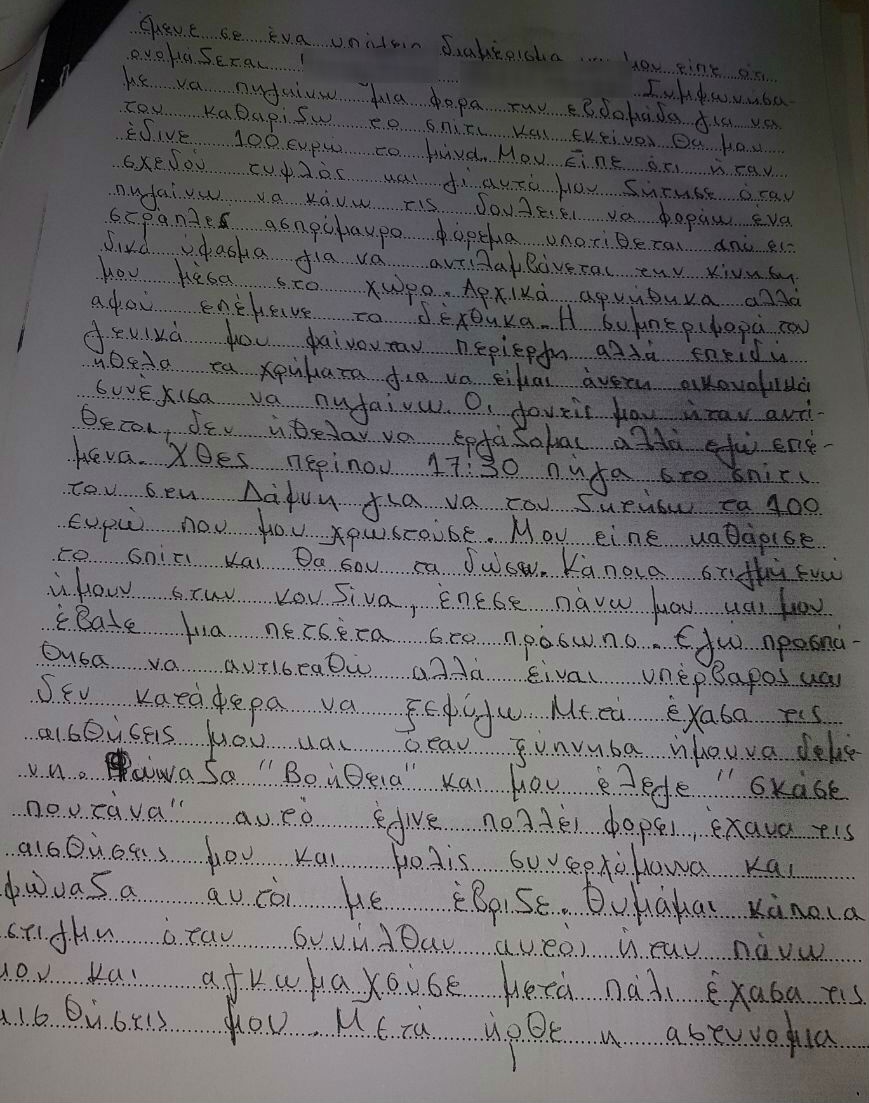 έμενε σε ένα υπόγειο διαμέρισμα ... μου είπε ότι
ονομάζεται Συμφωνήσα-
με να πηγαίνω μια φορά την εβδομάδα για να
του καθαρίζω το σπίτι και εκείνος θα μου
έδινε 100 ευρω το μήνα. Μου είπε ότι ήταν
σχεδόν τυφλός και γι αυτό μου ζήτησε όταν
πηγαίνω να κάνω τις δουλειει να φοράω ένα
στράπλες ασπρόμαυρο φόρεμα υποτίθεται από ει-
δικό ύφασμα για να αντιλαμβάνεται την κίνηση
μου μέσα στο χώρο. Αρχικά αρνήθηκα αλλά
αφού επέμεινε το δέχθηκα. Η συμπεριφορά του
γενικά μου φαίνονταν περίεργη αλλά επειδή
ήθελα τα χρήματα για να είμαι άνετη οικονομικά
συνέχισα να πηγαίνω. Οι γονείς μου ήταν αντί-
θετοι, δεν ήθελαν να εργάζομαι αλλά εγώ επέ-
μενα. Χθες περίπου 17:30 πήγα στο σπίτι
του στη Δάφνη για να του ζητήσω τα 100
ευρώ που μου χρωστούσε. Μου είπε καθάρισε
το σπίτι και θα σου τα δώσω. Κάποια στιγμή ενώ
ήμουν στην κουζίνα, έπεσε πάνω μου και μου
έβαλε μια πετσέτα στο πρόσωπο. Εγώ προσπά-
θησα να αντισταθώ αλλά είναι υπέρβαρος και
δεν κατάφερα να ξεφύγω. Μετά έχασα τις
αισθήσεις μου και όταν ξύπνησα ήμουνα δεμέ-
νη. Φώναζα "Βοήθεια" και μου έλεγε "σκάσε
πουτανα" αυτό έγινε πολλέι φορει, έχανα τις
αισθήσεις μου και μόλις συνερχόμουνα και
φώναζα αυτόι με έβριζε. Θυμάμαι κάποια
στιγμή όταν συνήλθαν αυτόι ήταν πάνω
μου και αγκωμαχούσε μετά πάλι έχασα τις
αισθήσεις μου. Μετά ήρθε η αστυνομια